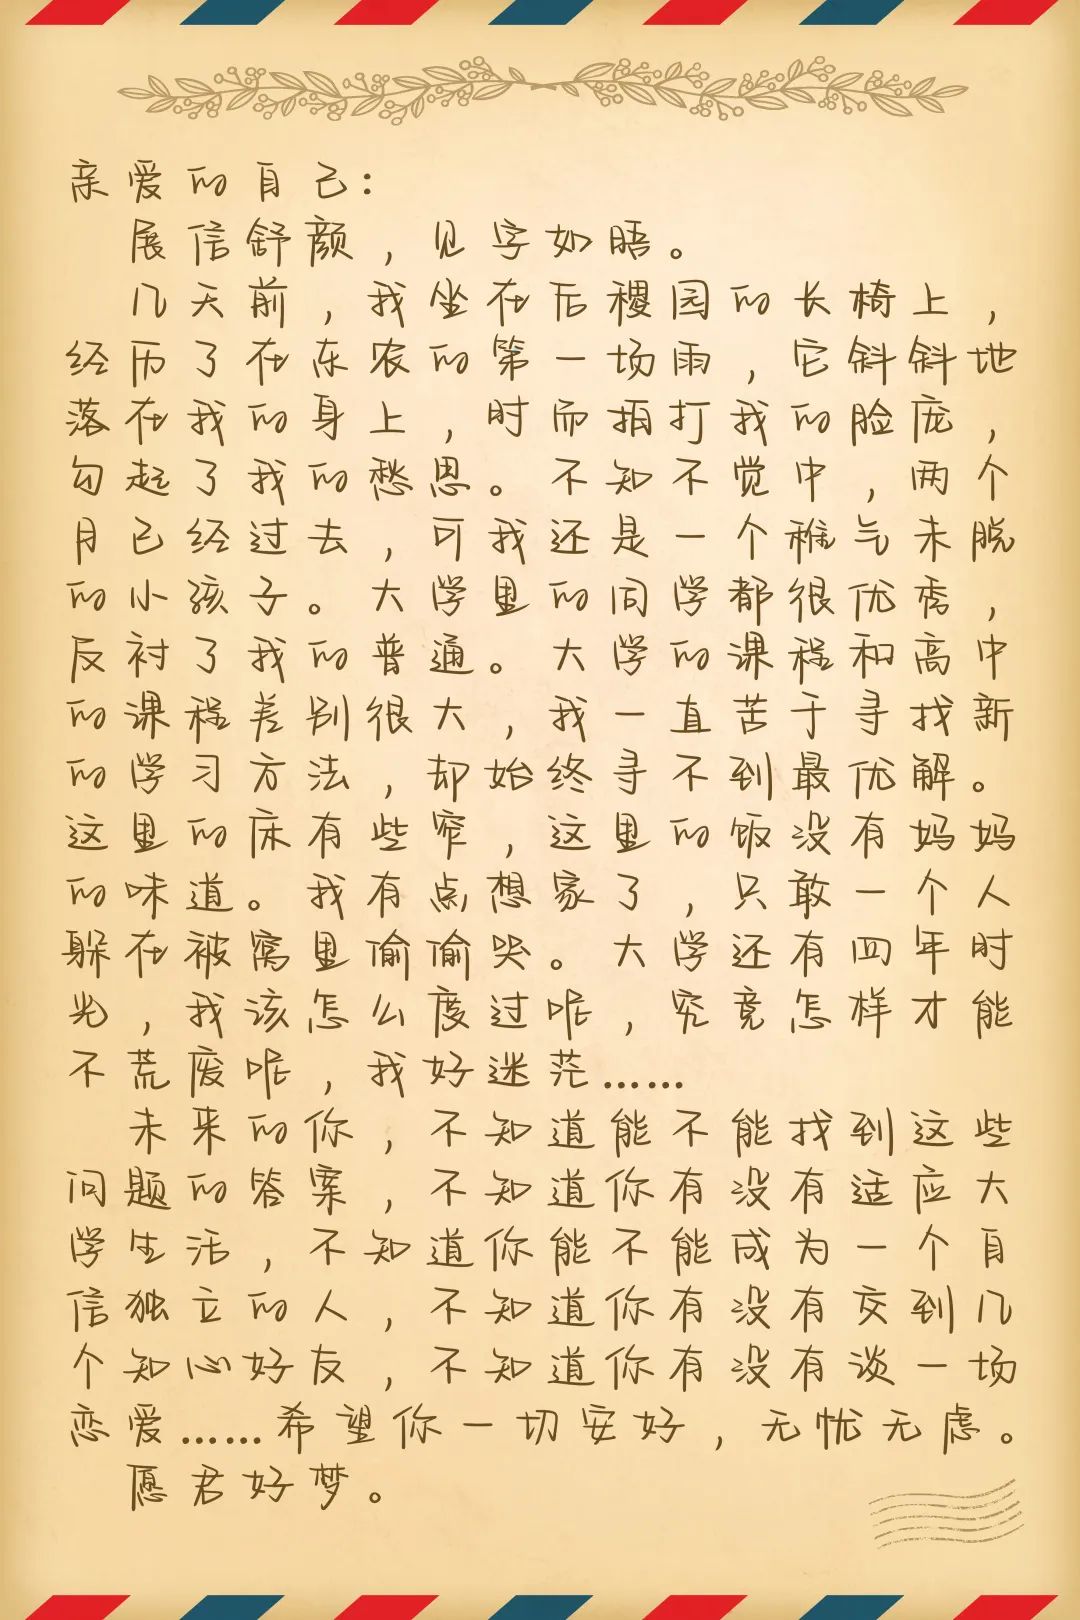 亲爱的自己：
展信舒颜，见字如晤。
几天前，我坐在后稷园的长椅上，
经历了在东农的第一场雨，它斜斜地
落在我的身上，时而拍打我的脸庞，
勾起了我的愁思。不知不觉中，两个
月已经过去，可我还是一个稚气未脱
的小孩子。大学里的同学都很优秀，
反衬了我的普通。大学的课程和高中
的课程差别很大，我一直苦于寻找新
的学习方法，却始终寻不到最优解。
这里的床有些窄，这里的饭没有妈妈
的味道。我有点想家了，只敢一个人
躲在被窝里偷偷哭。大学还有四年时
光，我该怎么度过呢，究竟怎样才能
不荒废呢，我好迷茫……
未来的你，不知道能不能找到这些
问题的答案，不知道你有没有适应大
学生活，不知道你能不能成为一个自
信独立的人，不知道你有没有交到几
个知心好友，不知道你有没有谈一场
恋爱……希望你一切安好，无忧无虑。
愿君好梦。